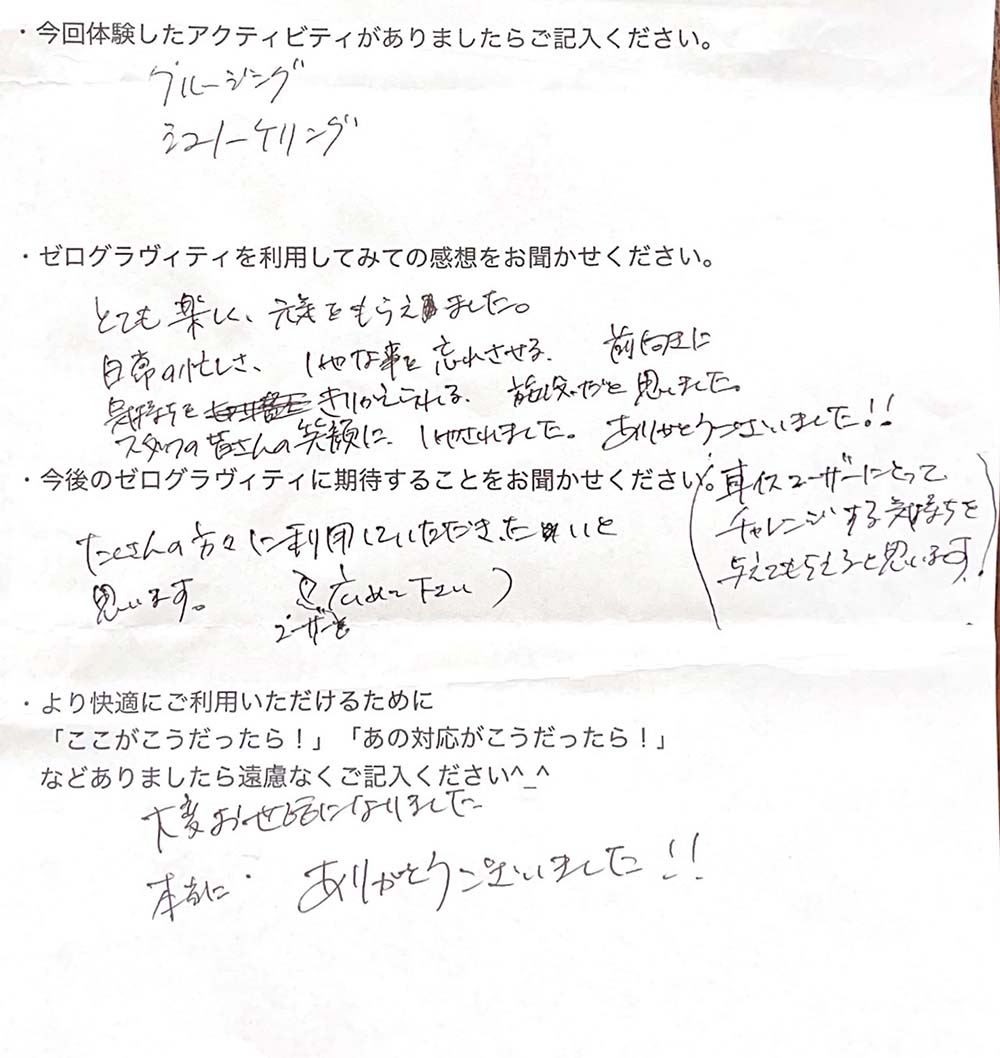 ・今回体験したアクティビティがありましたらご記入ください。
クルージング
シュノーケリング
・ゼログラヴィティを利用してみての感想をお聞かせください。
とても楽しく、元気をもらえました。
日常の忙しさ、いやな事を忘れさせる、前向きに
気持ちを きりかえられる、施設だと思いました。
スタッフの皆さんの笑顔に、いやされました。ありがとうございました!!
・今後のゼログラヴィティに期待することをお聞かせください。
たくさんの方々に利用していただきたいと
思います。 広めて下さい)
ユーザーを
(車イスユーザーにとって
チャレンジする気持ちを
与えてもらえると思います!)
・より快適にご利用いただけるために
「ここがこうだったら!」「あの対応がこうだったら!」
などありましたら遠慮なくご記入ください^_^
大変お世話になりました
本当に ありがとうございました!!